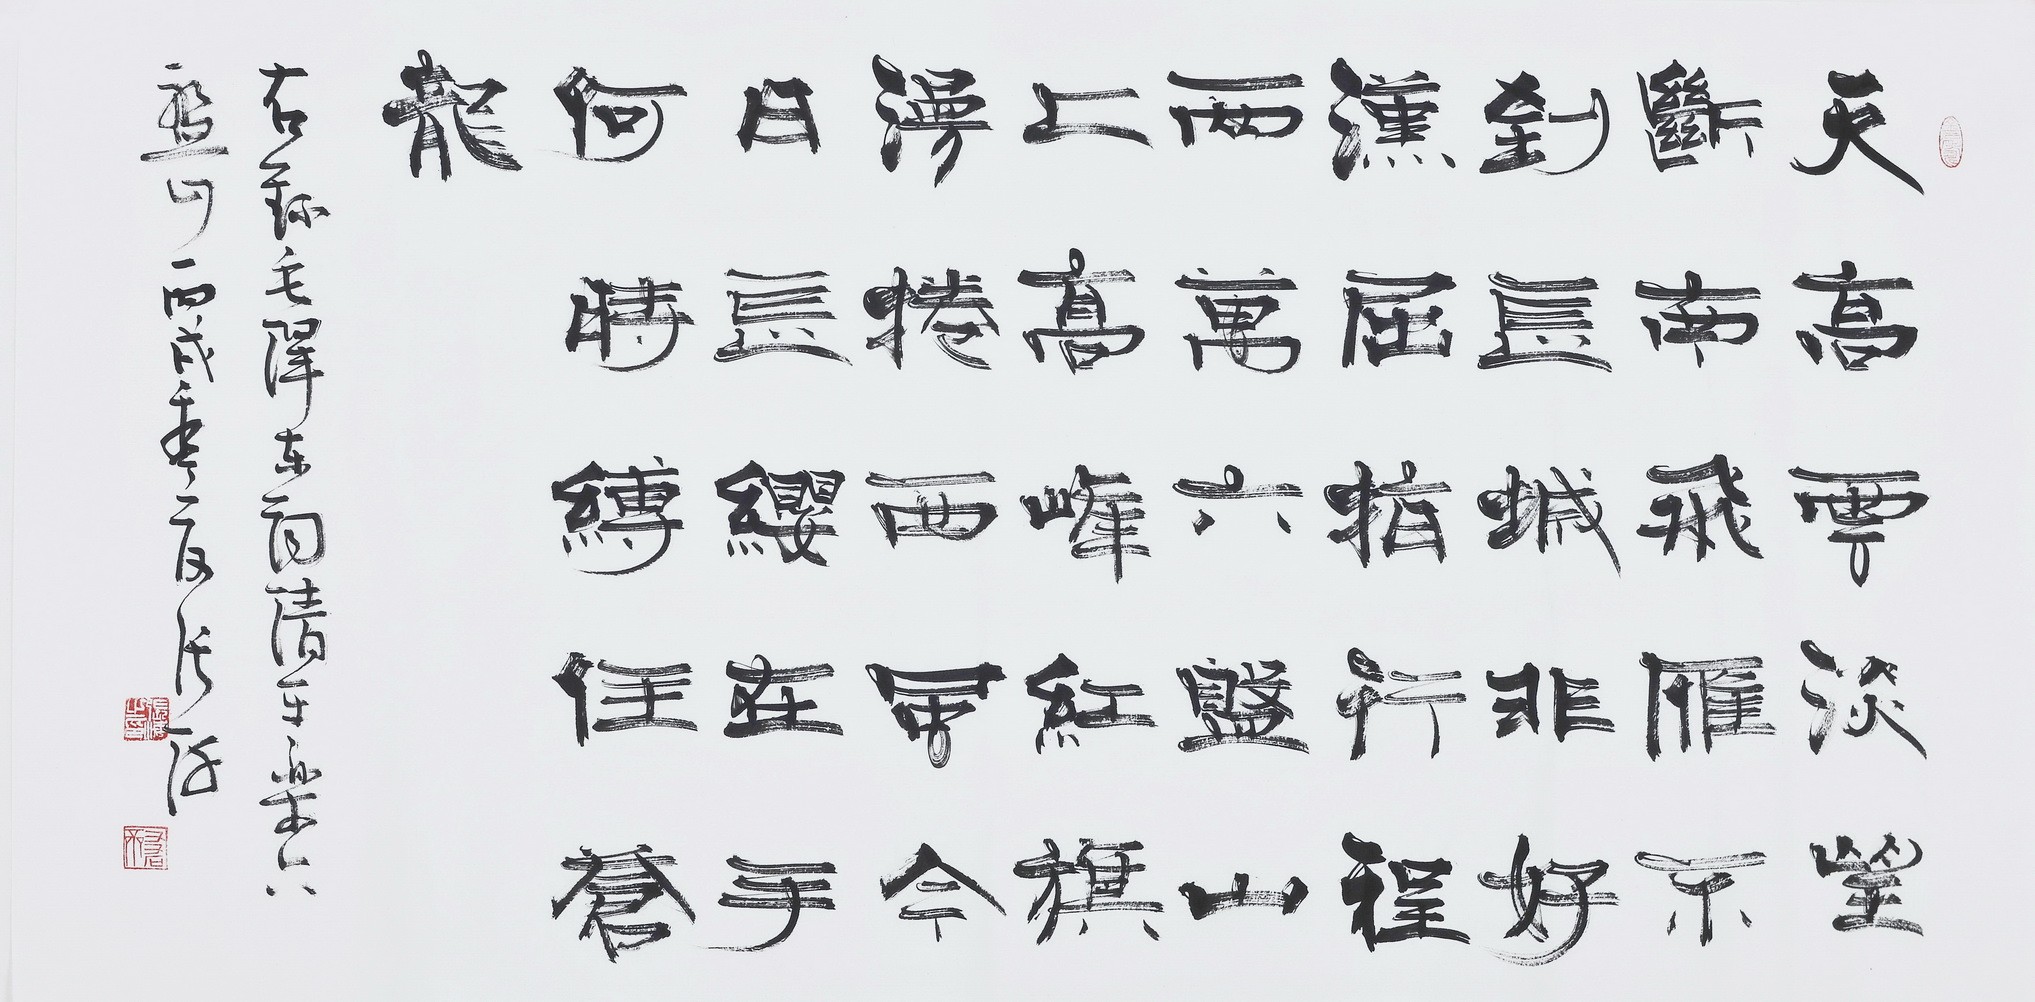 天高雲淡望
斷南飛雁不
到長城非好
漢屈指行程
兩萬六盤山
上高峰紅旗
漫捲西風今
日長纓在手
何時縛住蒼
龍
右録毛澤東詞清平樂六
盤山丙戌季夏張海